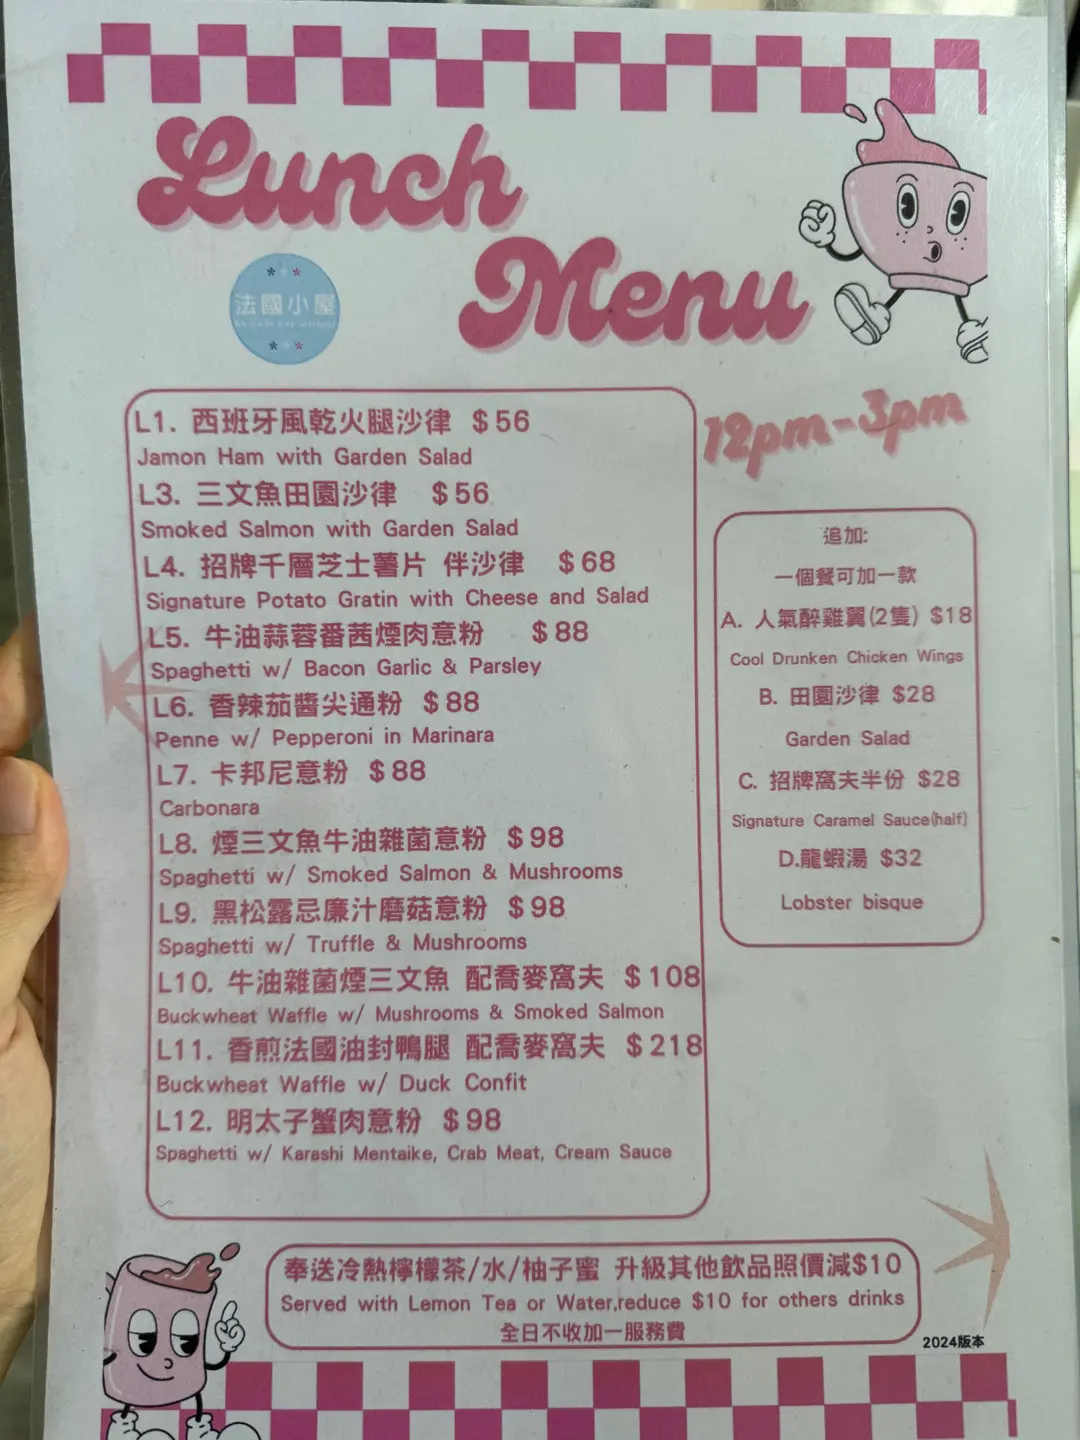 Lunch
Menu
法國小屋
12pm-3pm
L1. 西班牙風乾火腿沙律 $56
Jamon Ham with Garden Salad
L3. 三文魚田園沙律 $56
Smoked Salmon with Garden Salad
L4. 招牌千層芝士薯片 伴沙律 $68
Signature Potato Gratin with Cheese and Salad
L5. 牛油蒜蓉番茜煙肉意粉 $88
Spaghetti w/ Bacon Garlic & Parsley
L6. 香辣茄醬尖通粉 $88
Penne w/ Pepperoni in Marinara
L7. 卡邦尼意粉 $88
Carbonara
L8. 煙三文魚牛油雜菌意粉 $98
Spaghetti w/ Smoked Salmon & Mushrooms
L9. 黑松露忌廉汁磨菇意粉 $98
Spaghetti w/ Truffle & Mushrooms
L10. 牛油雜菌煙三文魚 配喬麥窩夫 $108
Buckwheat Waffle w/ Mushrooms & Smoked Salmon
L11. 香煎法國油封鴨腿 配喬麥窩夫 $218
Buckwheat Waffle w/ Duck Confit
L12. 明太子蟹肉意粉 $98
Spaghetti w/ Karashi Mentaike, Crab Meat, Cream Sauce
追加:
一個餐可加一款
A. 人氣醉雞翼(2隻) $18
Cool Drunken Chicken Wings
B. 田園沙律 $28
Garden Salad
C. 招牌窩夫半份 $28
Signature Caramel Sauce(half)
D.龍蝦湯 $32
Lobster bisque
奉送冷熱檸檬茶/水/柚子蜜 升級其他飲品照價減$10
Served with Lemon Tea or Water,reduce $10 for others drinks
全日不收加一服務費
2024版本